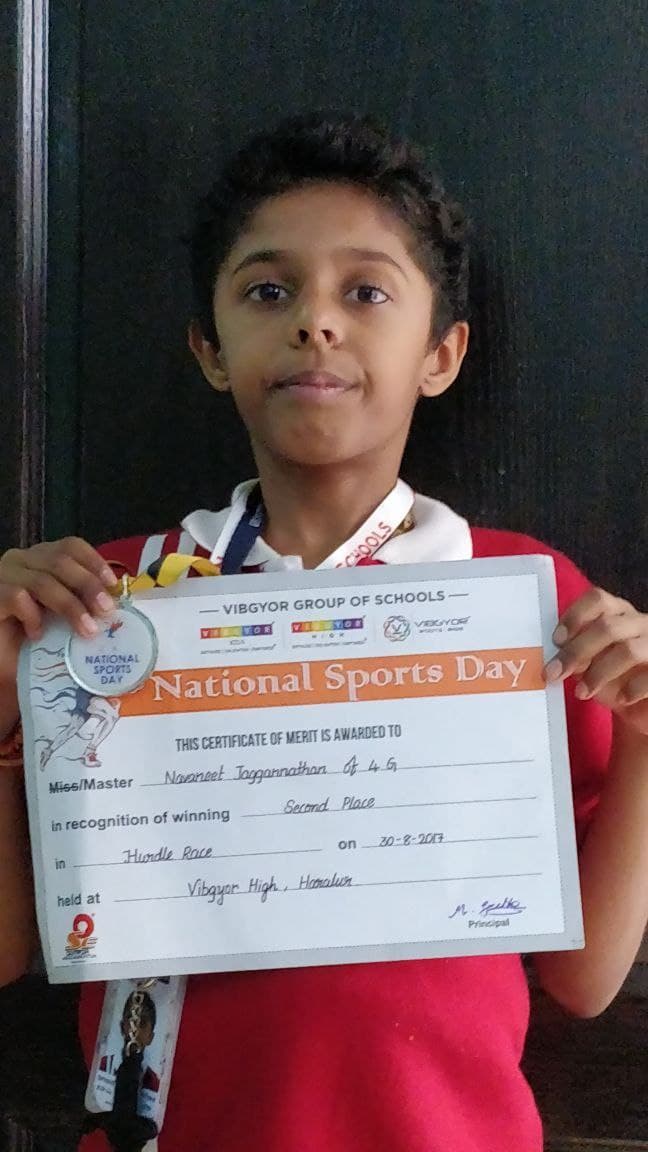 SCHOOLS
VIBGYOR GROUP OF SCHOOLS
VIBGYOR
KIDS
VIBGYOR
HIGH
VIBGYOR
NATIONAL
SPORTS
DAY
National Sports Day
THIS CERTIFICATE OF MERIT IS AWARDED TO
Miss/Master Navaneet Jaggannathan Of 4 G
in recognition of winning Second Place
in Hurdle Race on 30-8-2017
held at Vibgyor High, Haralur
Principal